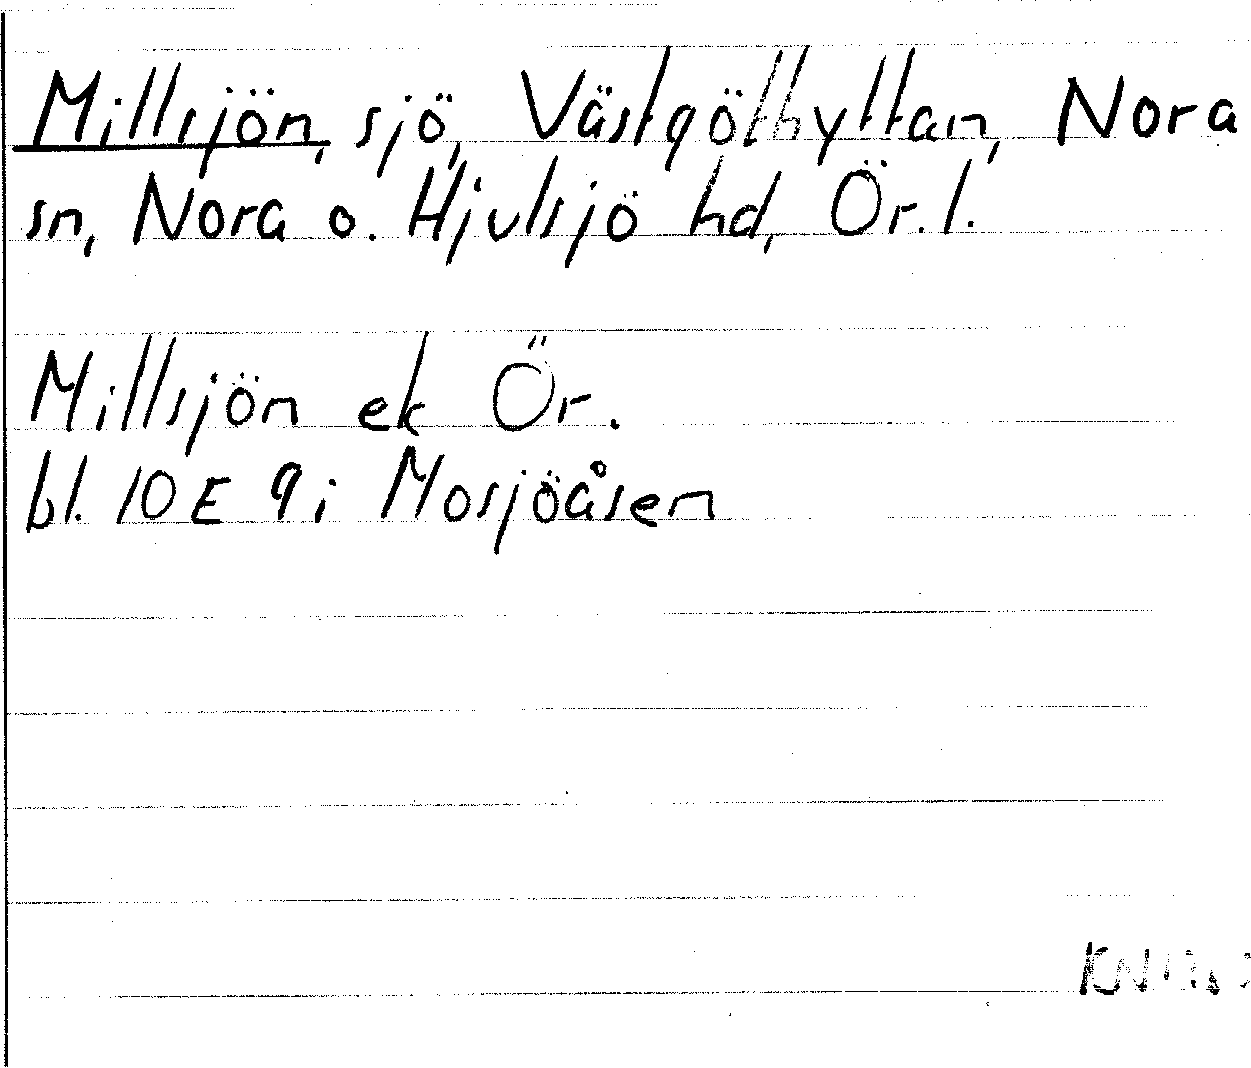 Millsjön, sjö, Västgöthyttan, Nora
sn, Nora o. Hjulsjö hd, Ör. l.
Millsjön ek Ör.
bl. 10E 9i Mosjöåsen